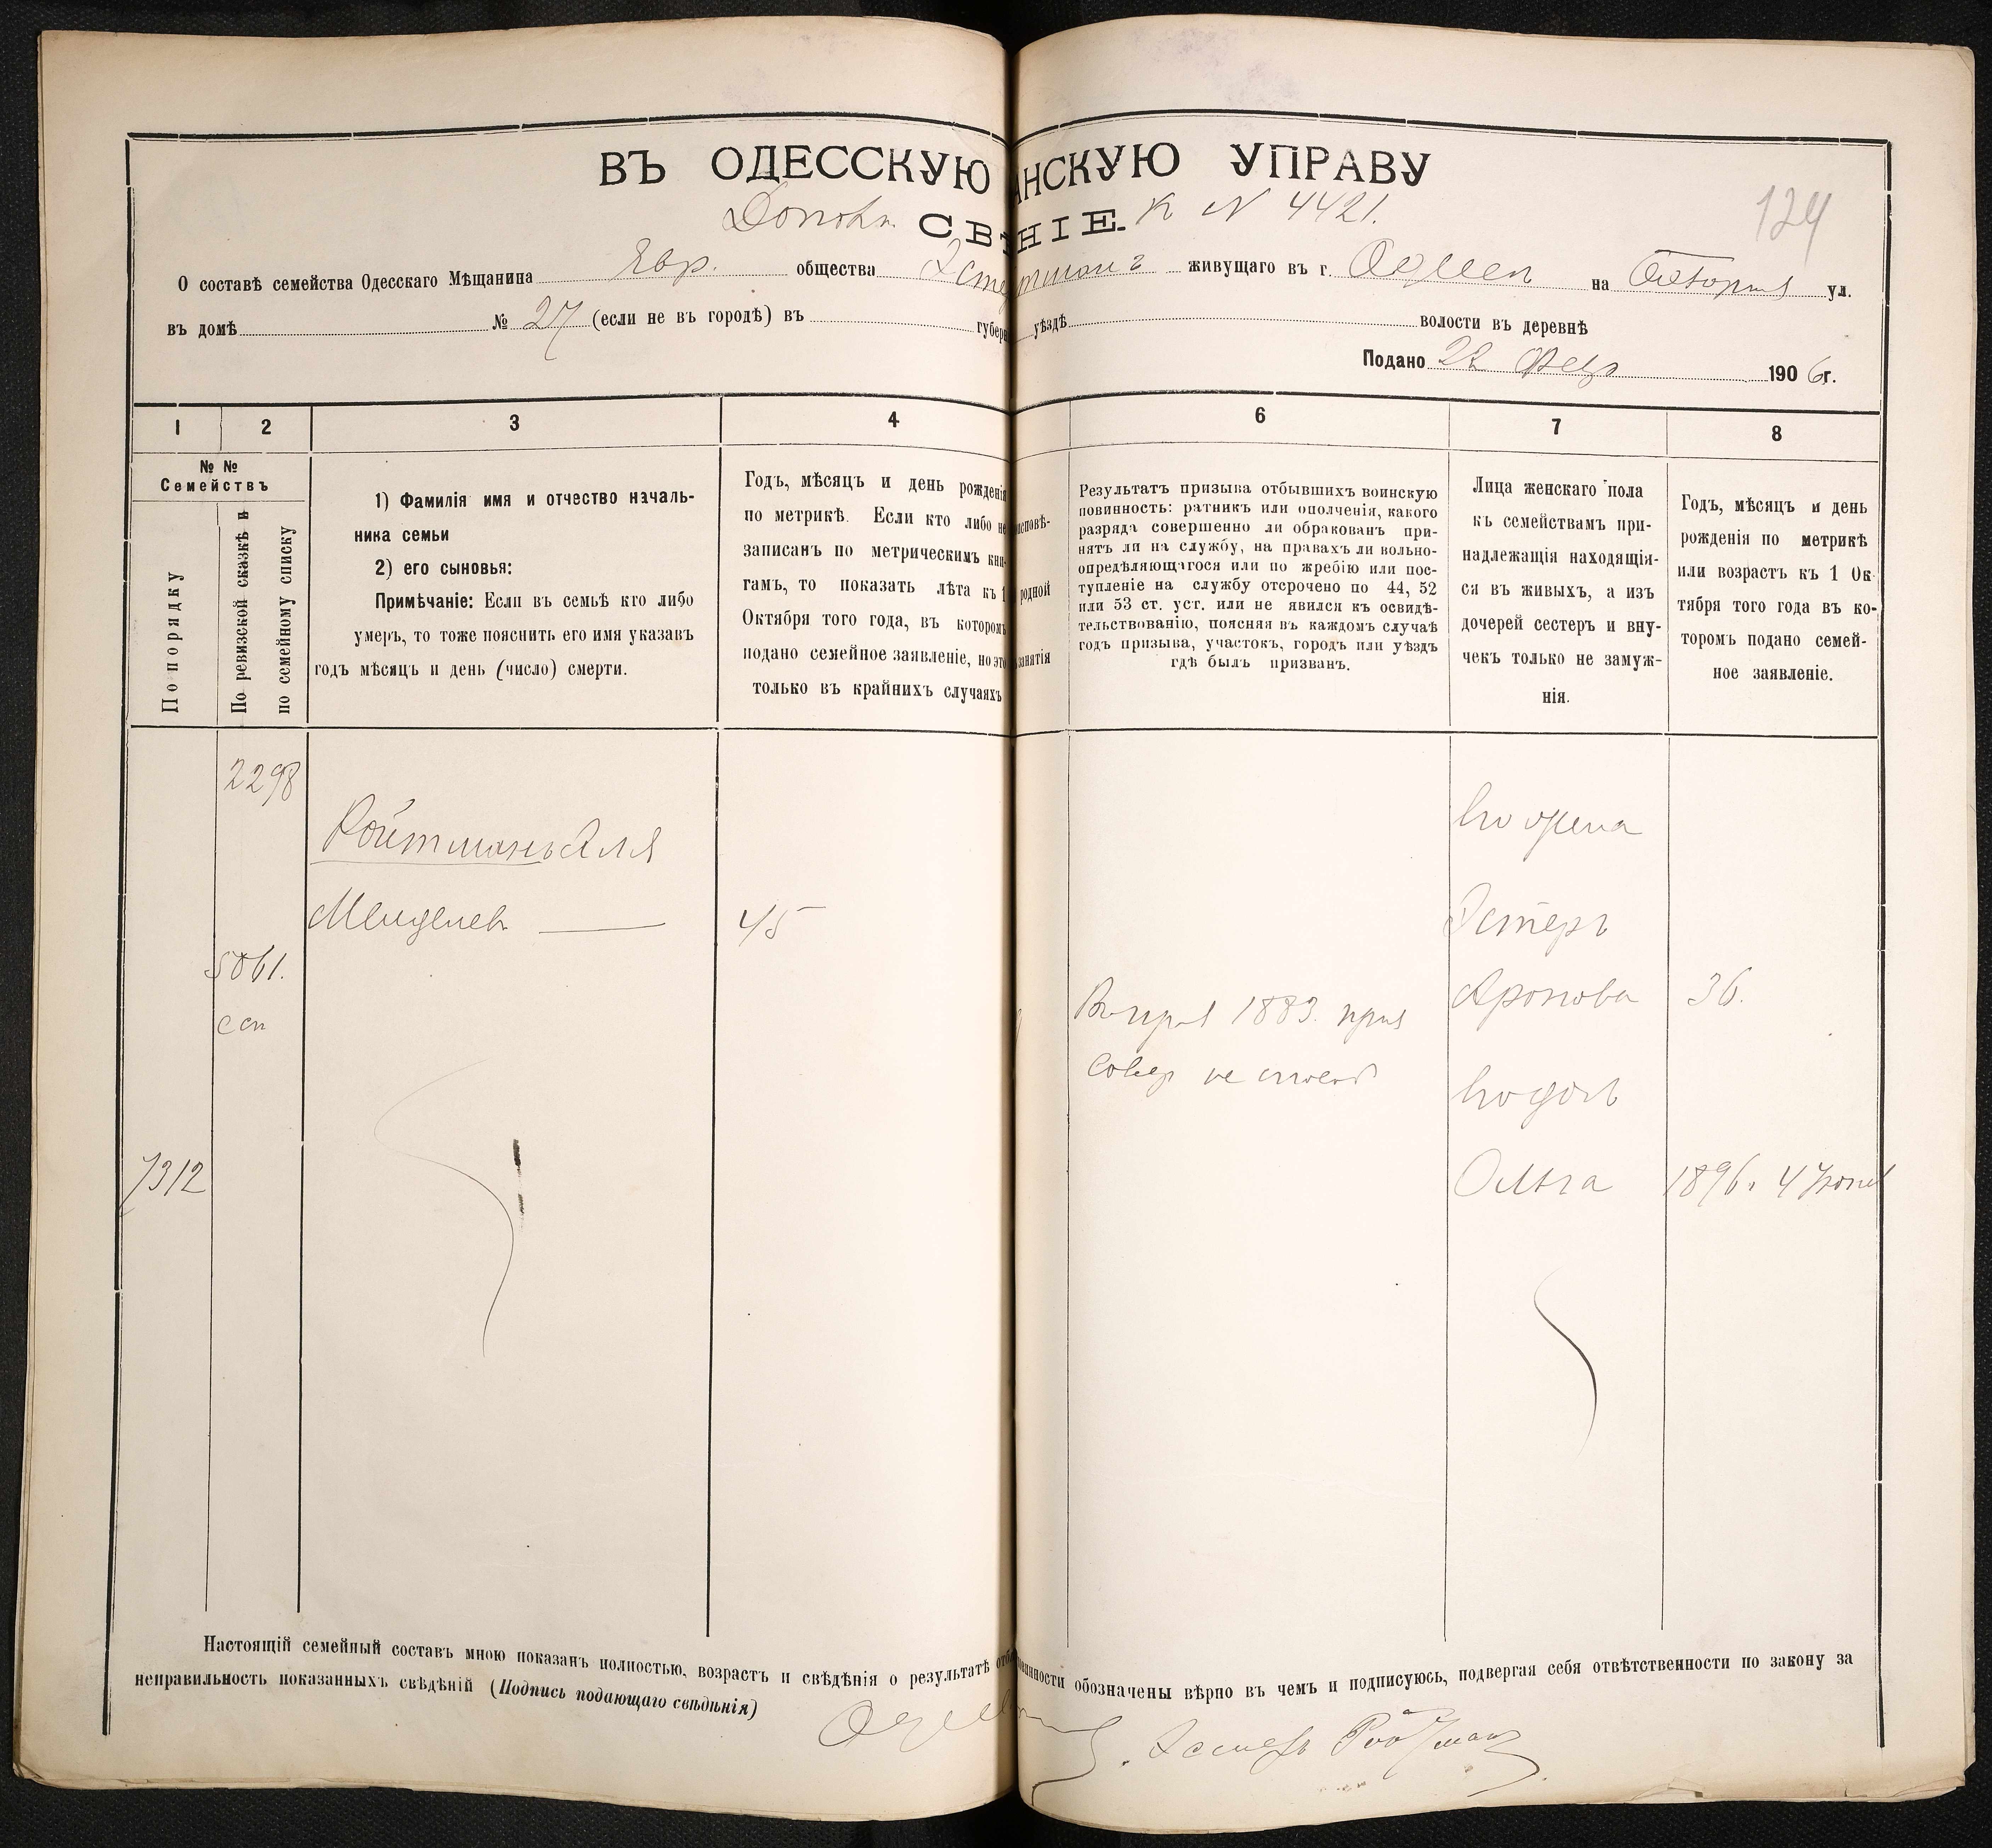 ВЪ ОДЕССКУЮ АНСКУЮ УПРАВУ
СВ НІЕ. к № 4421.
124
О составѣ семейства Одесскаго Мѣщанина Евр. общества живущаго въ г. на ул.
въ домѣ № 27 (если не въ городѣ) въ губер уѣздѣ волости въ деревнѣ
Подано 22 1906 г.
1 2 3 4 6 7 8
№ №
Семействъ
По порядку
По ревизской сказкѣ и
по семейному списку
1) Фамилія имя и отчество началь-
ника семьи
2) его сыновья:
Примѣчаніе: Если въ семьѣ кто либо
умеръ, то тоже пояснить его имя указавъ
годъ мѣсяцъ и день (число) смерти.
Годъ, мѣсяцъ и день рожденія
по метрикѣ. Если кто либо не
записанъ по метрическимъ кни-
гамъ, то показать лѣта къ 1
Октября того года, въ которомъ
подано семейное заявленіе, но это
только въ крайнихъ случаяхъ
исповѣ-
родной
занятія
Результатъ призыва отбывшихъ воинскую
повинность: ратникъ или ополченія, какого
разряда совершенно ли обракованъ при-
нятъ ли на службу, на правахъ ли вольно-
опредѣляющагося или по жребію или пос-
тупленіе на службу отсрочено по 44, 52
или 53 ст. уст. или не явился къ освидѣ-
тельствованію, поясняя въ каждомъ случаѣ
годъ призыва, участокъ, городъ или уѣздъ
гдѣ былъ призванъ.
Лица женскаго пола
къ семействамъ при-
надлежащія находящія-
ся въ живыхъ, а изъ
дочерей сестеръ и вну-
чекъ только не замуж-
нія.
Годъ, мѣсяцъ и день
рожденія по метрикѣ
или возрастъ къ 1 Ок-
тября того года въ ко-
торомъ подано семей-
ное заявленіе.
2298
Ройтманъ
Менделев
45
5061.
7312
1883.
не
жена
Эстеръ
Аронова 36.
Ольга 1896. 4
Настоящій семейный составъ мною показанъ полностью, возрастъ и свѣдѣнія о результатѣ отб винности обозначены вѣрно въ чемъ и подписуюсь, подвергая себя отвѣтственности по закону за
неправильность показанныхъ свѣдѣній (Подпись подающаго свѣдѣнія)